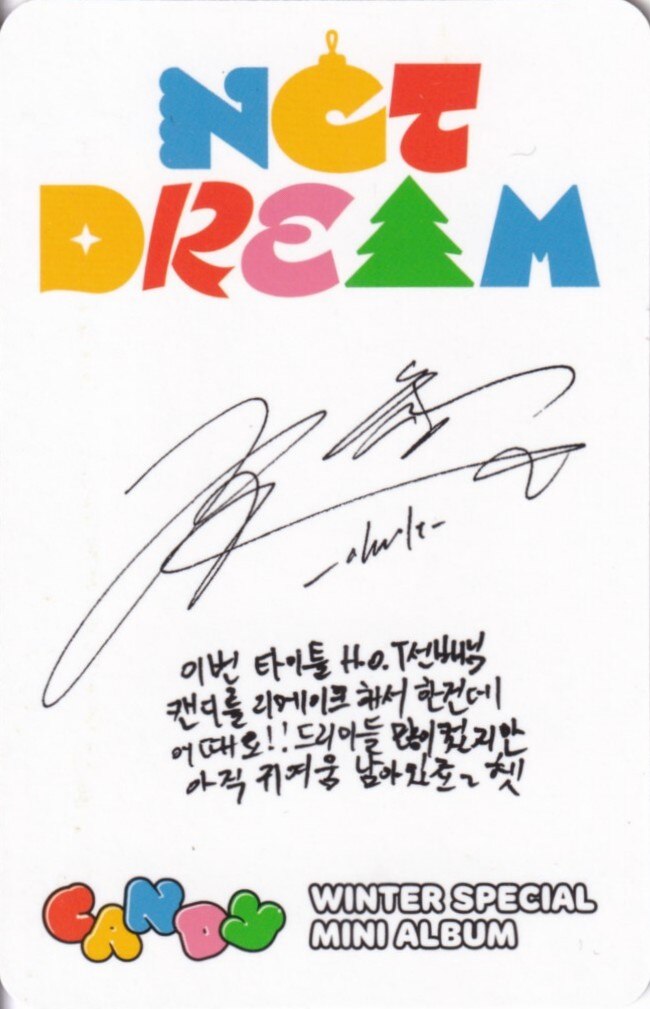 NCT
DREAM
이번 타이틀 H.O.T선배님
캔디를 리메이크 해서 한건데
어때요!! 드리머들 많이컸지만
아직 귀여움 남아있쥬ㄴ 쳇
CANDY WINTER SPECIAL
MINI ALBUM